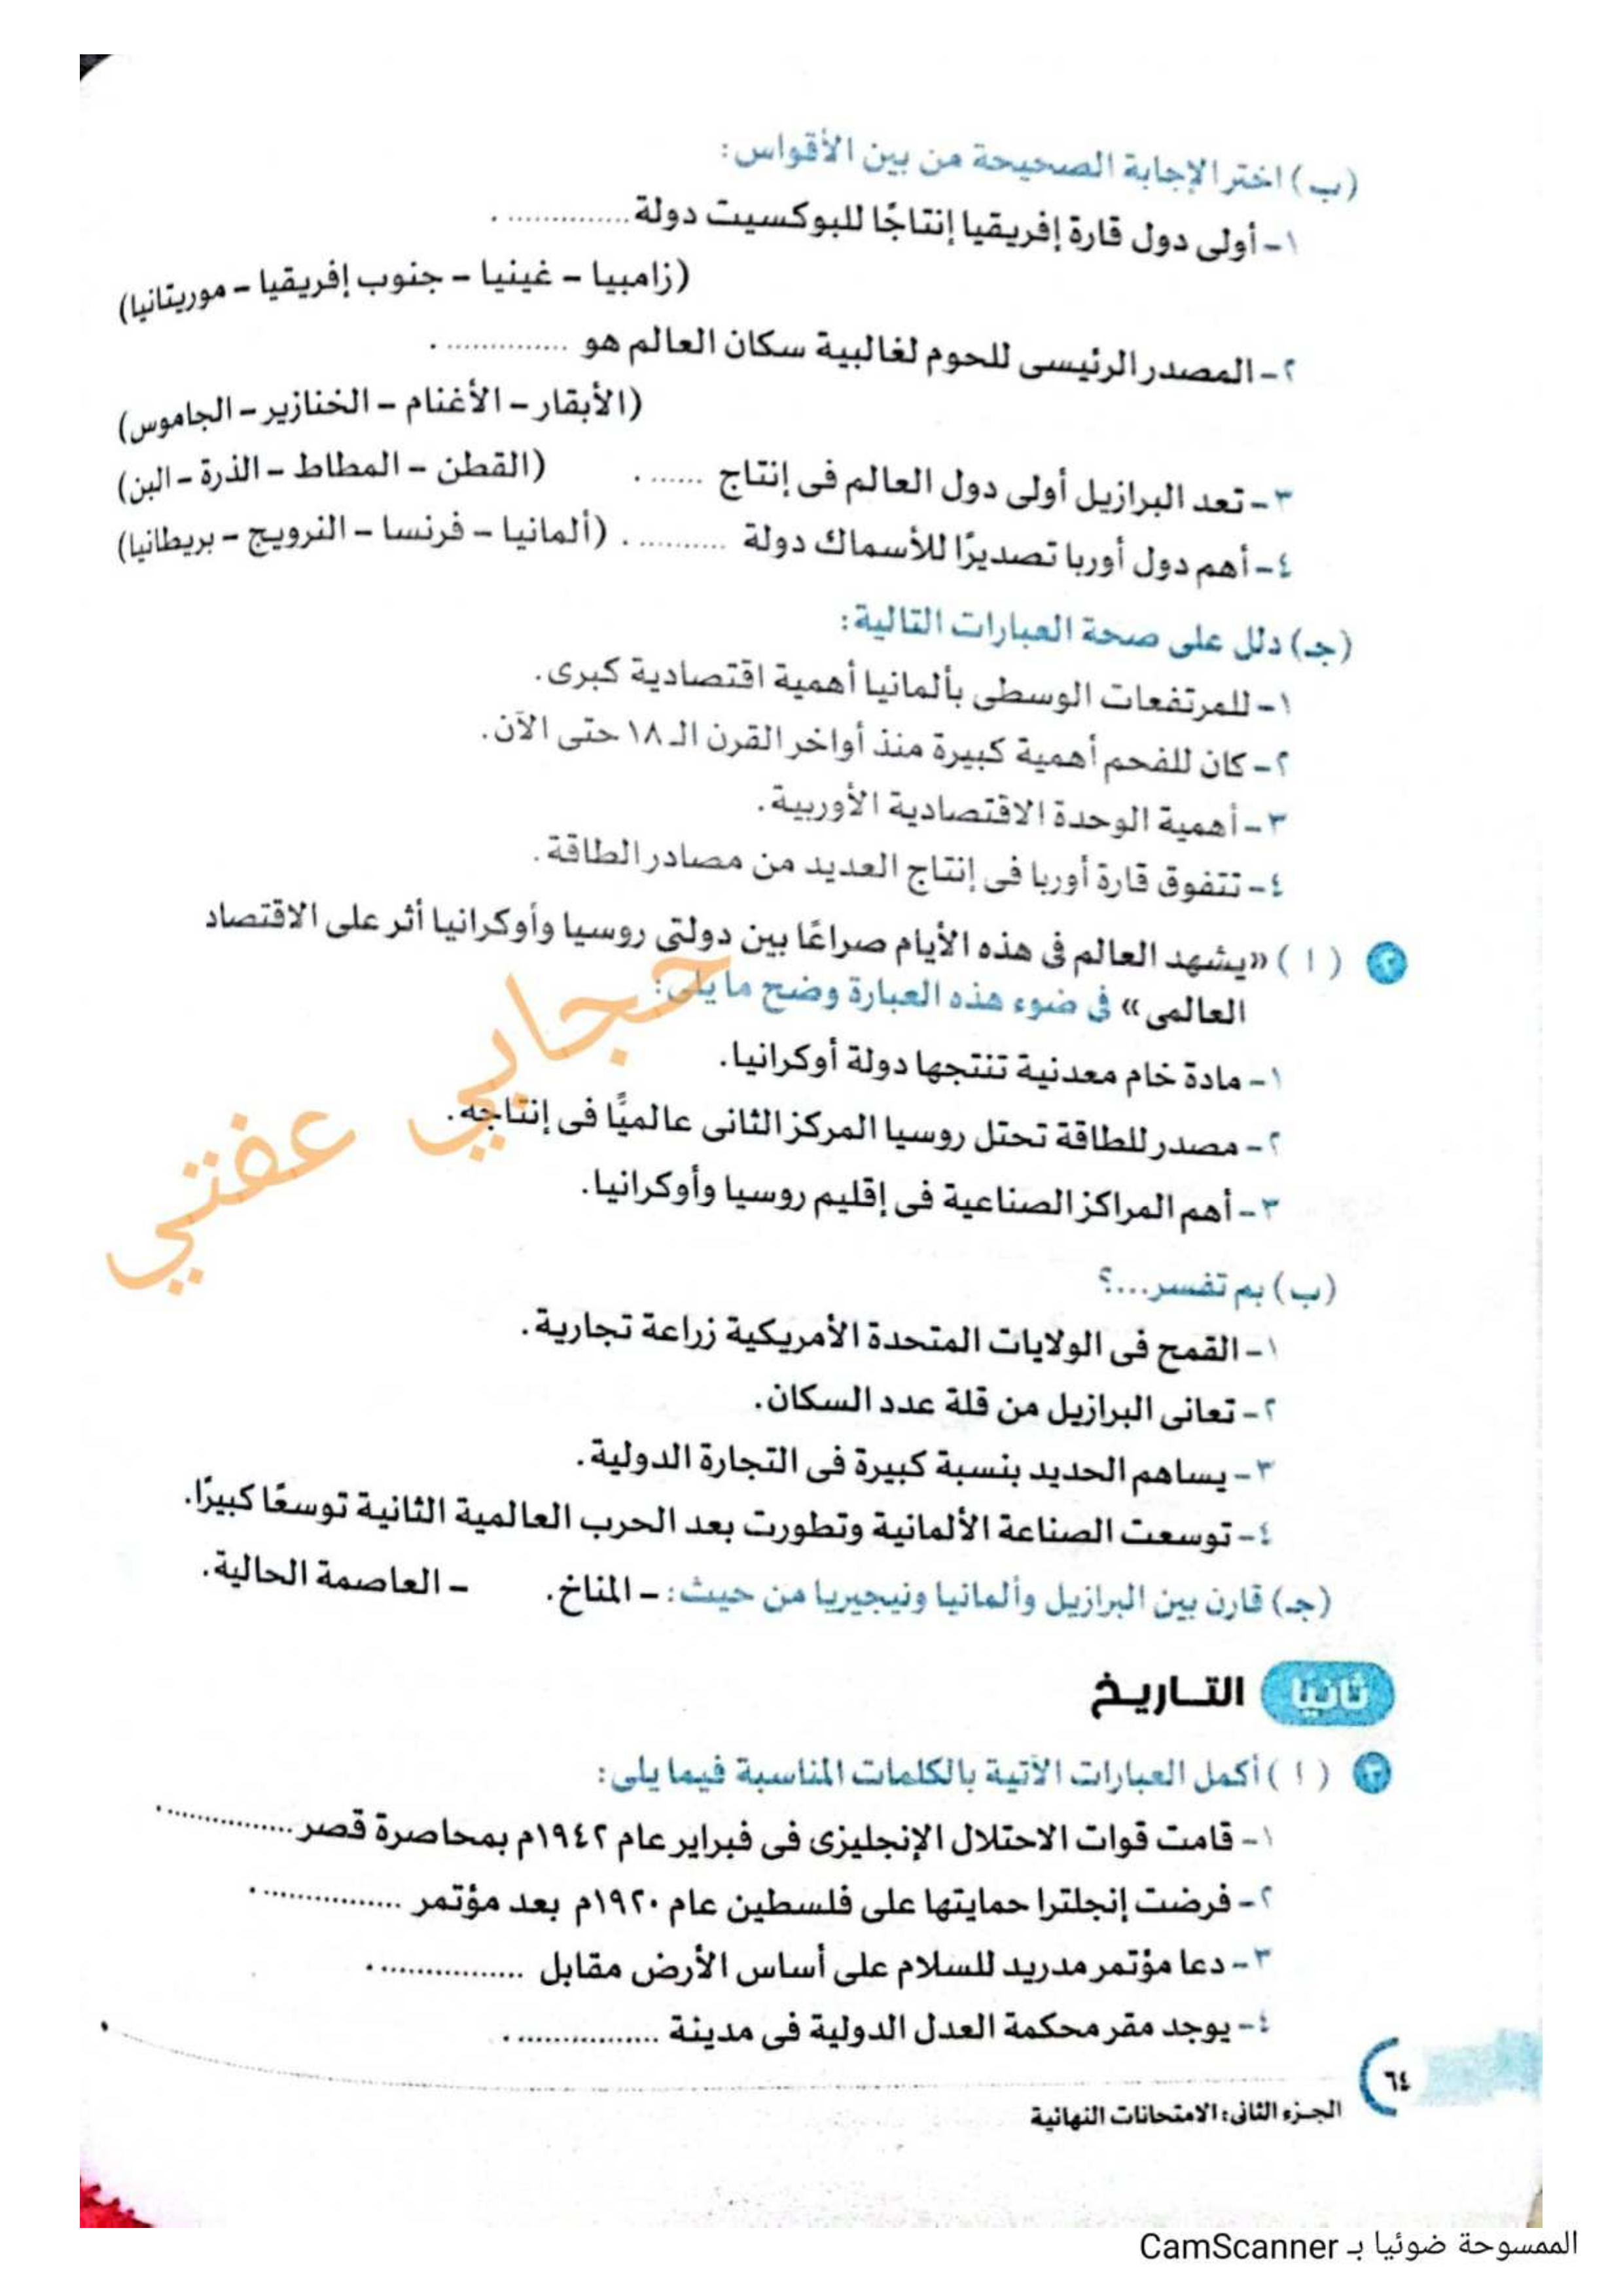 (ب) اختر الإجابة الصحيحة من بين الأقواس:
١- أولى دول قارة إفريقيا إنتاجًا للبوكسيت دولة .............. .
(زامبيا - غينيا - جنوب إفريقيا - موريتانيا)
٢- المصدر الرئيسى للحوم لغالبية سكان العالم هو .............. .
(الأبقار - الأغنام - الخنازير - الجاموس)
٣- تعد البرازيل أولى دول العالم فى إنتاج ...... . (القطن - المطاط - الذرة - البن)
٤- أهم دول أوربا تصديرًا للأسماك دولة .......... . (ألمانيا - فرنسا - النرويج - بريطانيا)
(جـ) دلل على صحة العبارات التالية:
١- للمرتفعات الوسطى بألمانيا أهمية اقتصادية كبرى.
٢- كان للفحم أهمية كبيرة منذ أواخر القرن الـ ١٨ حتى الآن.
٣- أهمية الوحدة الاقتصادية الأوربية.
٤- تتفوق قارة أوربا فى إنتاج العديد من مصادر الطاقة.
٢ ( ا ) «يشهد العالم فى هذه الأيام صراعًا بين دولتى روسيا وأوكرانيا أثر على الاقتصاد
العالمى» فى ضوء هذه العبارة وضح ما يلى:
١- مادة خام معدنية تنتجها دولة أوكرانيا.
٢- مصدر للطاقة تحتل روسيا المركز الثانى عالميًّا فى إنتاجه.
٣- أهم المراكز الصناعية فى إقليم روسيا وأوكرانيا.
حجابي عفتي
(ب) بم تفسر...؟
١- القمح فى الولايات المتحدة الأمريكية زراعة تجارية.
٢- تعانى البرازيل من قلة عدد السكان.
٣- يساهم الحديد بنسبة كبيرة فى التجارة الدولية.
٤- توسعت الصناعة الألمانية وتطورت بعد الحرب العالمية الثانية توسعًا كبيرًا.
(جـ) قارن بين البرازيل وألمانيا ونيجيريا من حيث: - المناخ. - العاصمة الحالية.
ثانيًا التـاريـخ
٣ ( ا ) أكمل العبارات الآتية بالكلمات المناسبة فيما يلى:
١- قامت قوات الاحتلال الإنجليزى فى فبراير عام ١٩٤٢م بمحاصرة قصر .............. .
٢- فرضت إنجلترا حمايتها على فلسطين عام ١٩٢٠م بعد مؤتمر ................ .
٣- دعا مؤتمر مدريد للسلام على أساس الأرض مقابل ................ .
٤- يوجد مقر محكمة العدل الدولية فى مدينة ................ .
٦٤
الجـزء الثانى: الامتحانات النهائية
الممسوحة ضوئيا بـ CamScanner